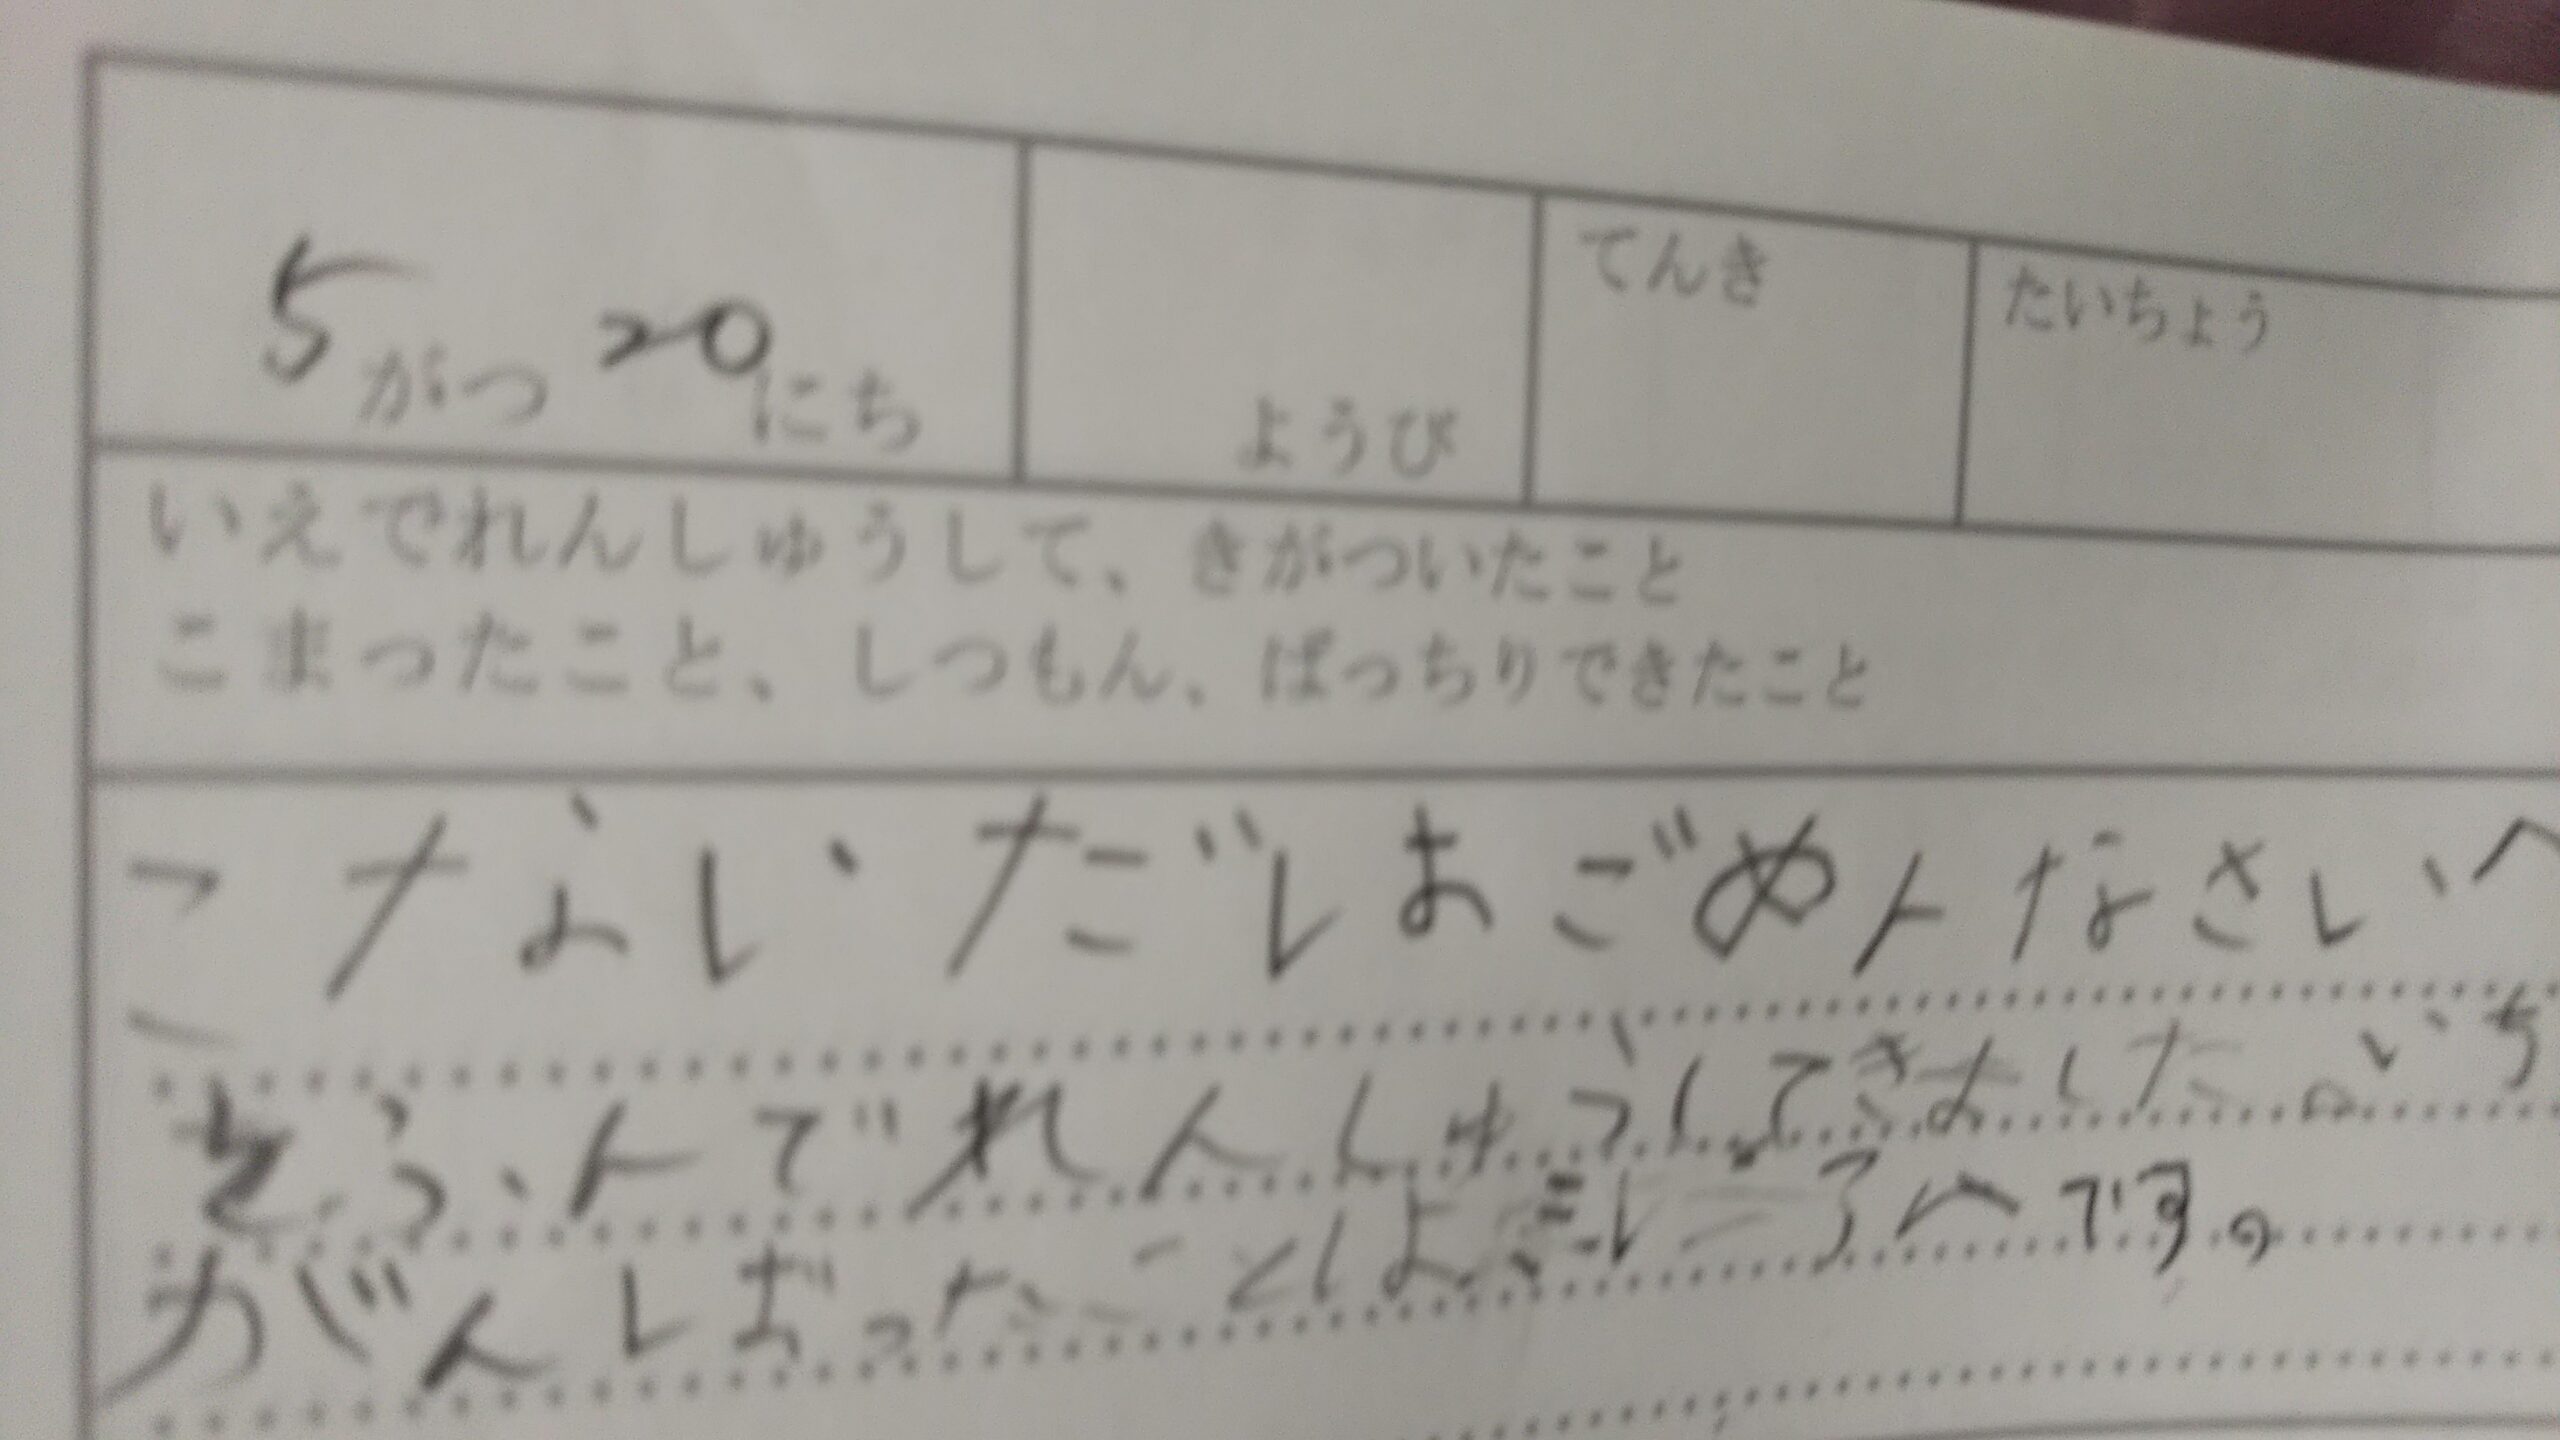 5がつ20にち
ようび
てんき
たいちょう
いえでれんしゅうして、きがついたこと
こまったこと、しつもん、ばっちりできたこと
こないだしはごめんなさいへ
でれんしゅうしてきました。いち
がんばったことは です。